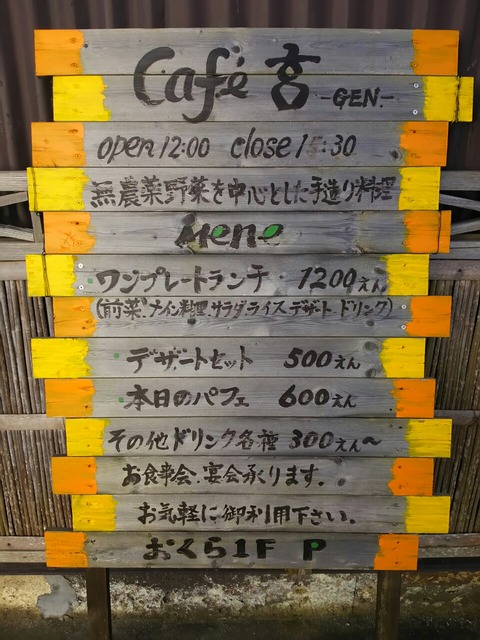 Café 玄 -GEN.-
open 12:00 close 15:30
無農薬野菜を中心とした手造り料理
Menu
ワンプレートランチ 1200えん
(前菜.メイン料理.サラダ.ライス.デザート.ドリンク)
デザートセット 500えん
本日のパフェ 600えん
その他ドリンク各種 300えん〜
お食事会.宴会承ります.
お気軽に御利用下さい.
おくら1F P